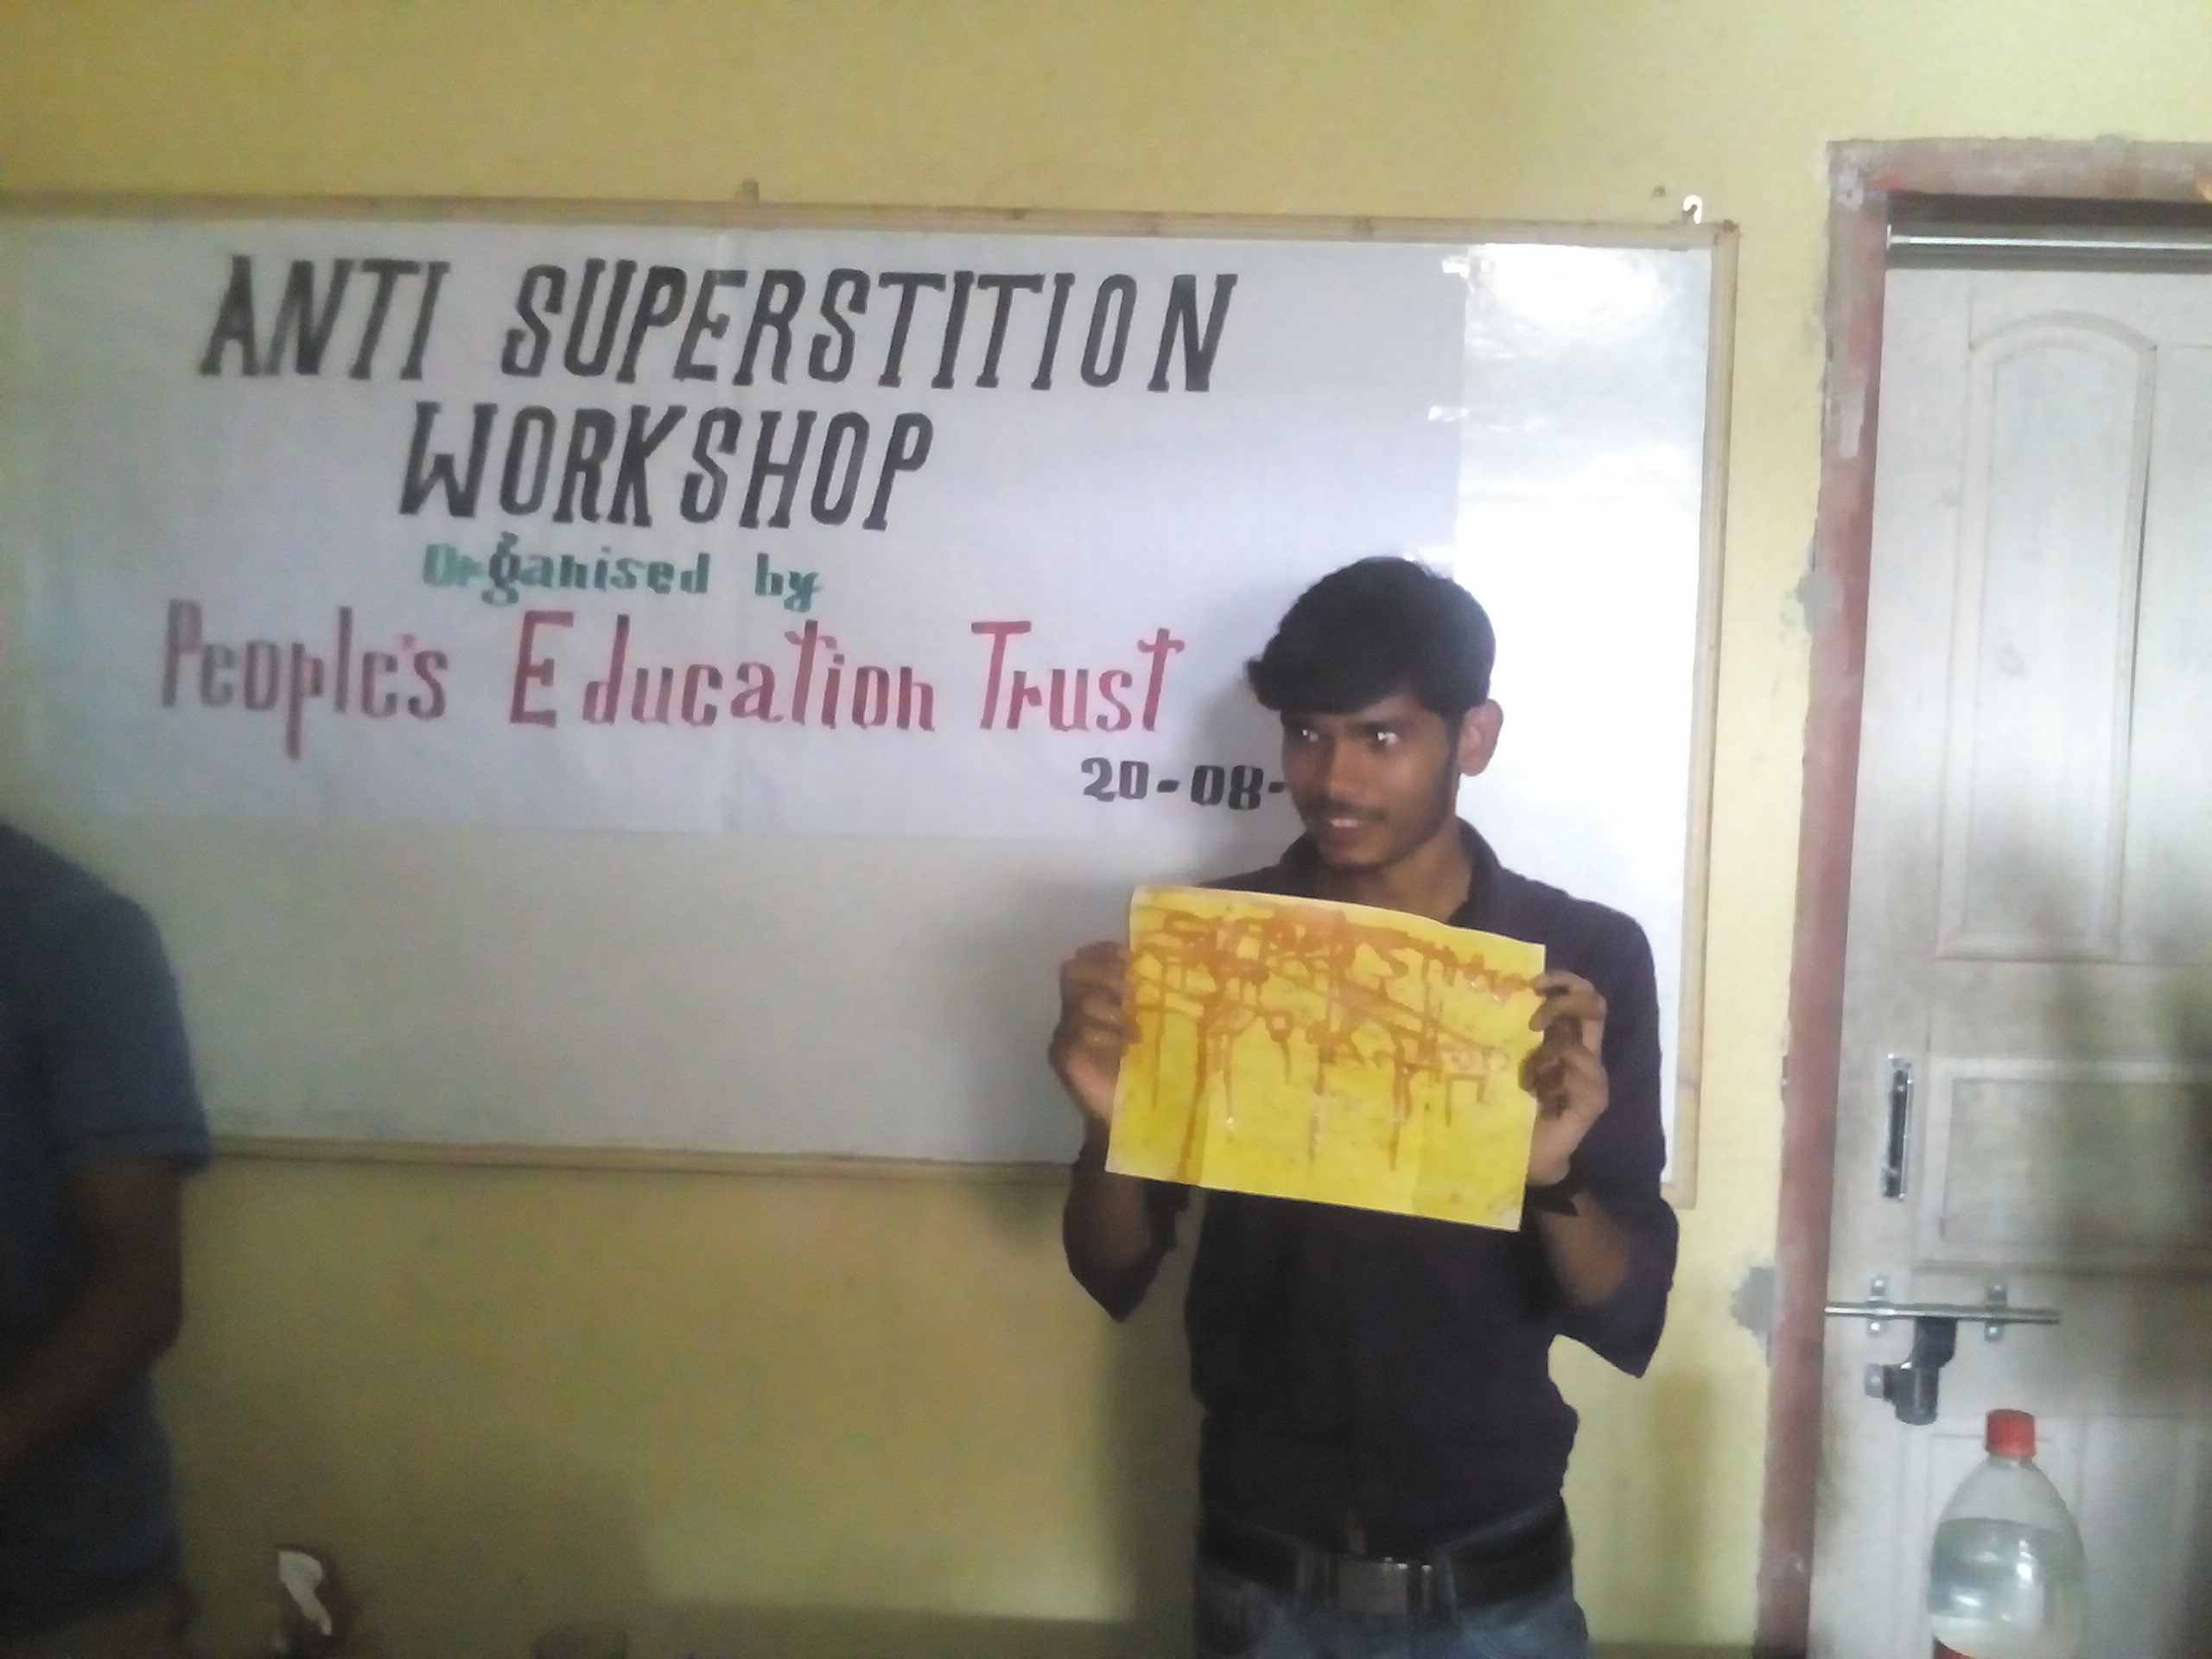 ANTI SUPERSTITION
WORKSHOP
Organised by
People's Education Trust
20-08-